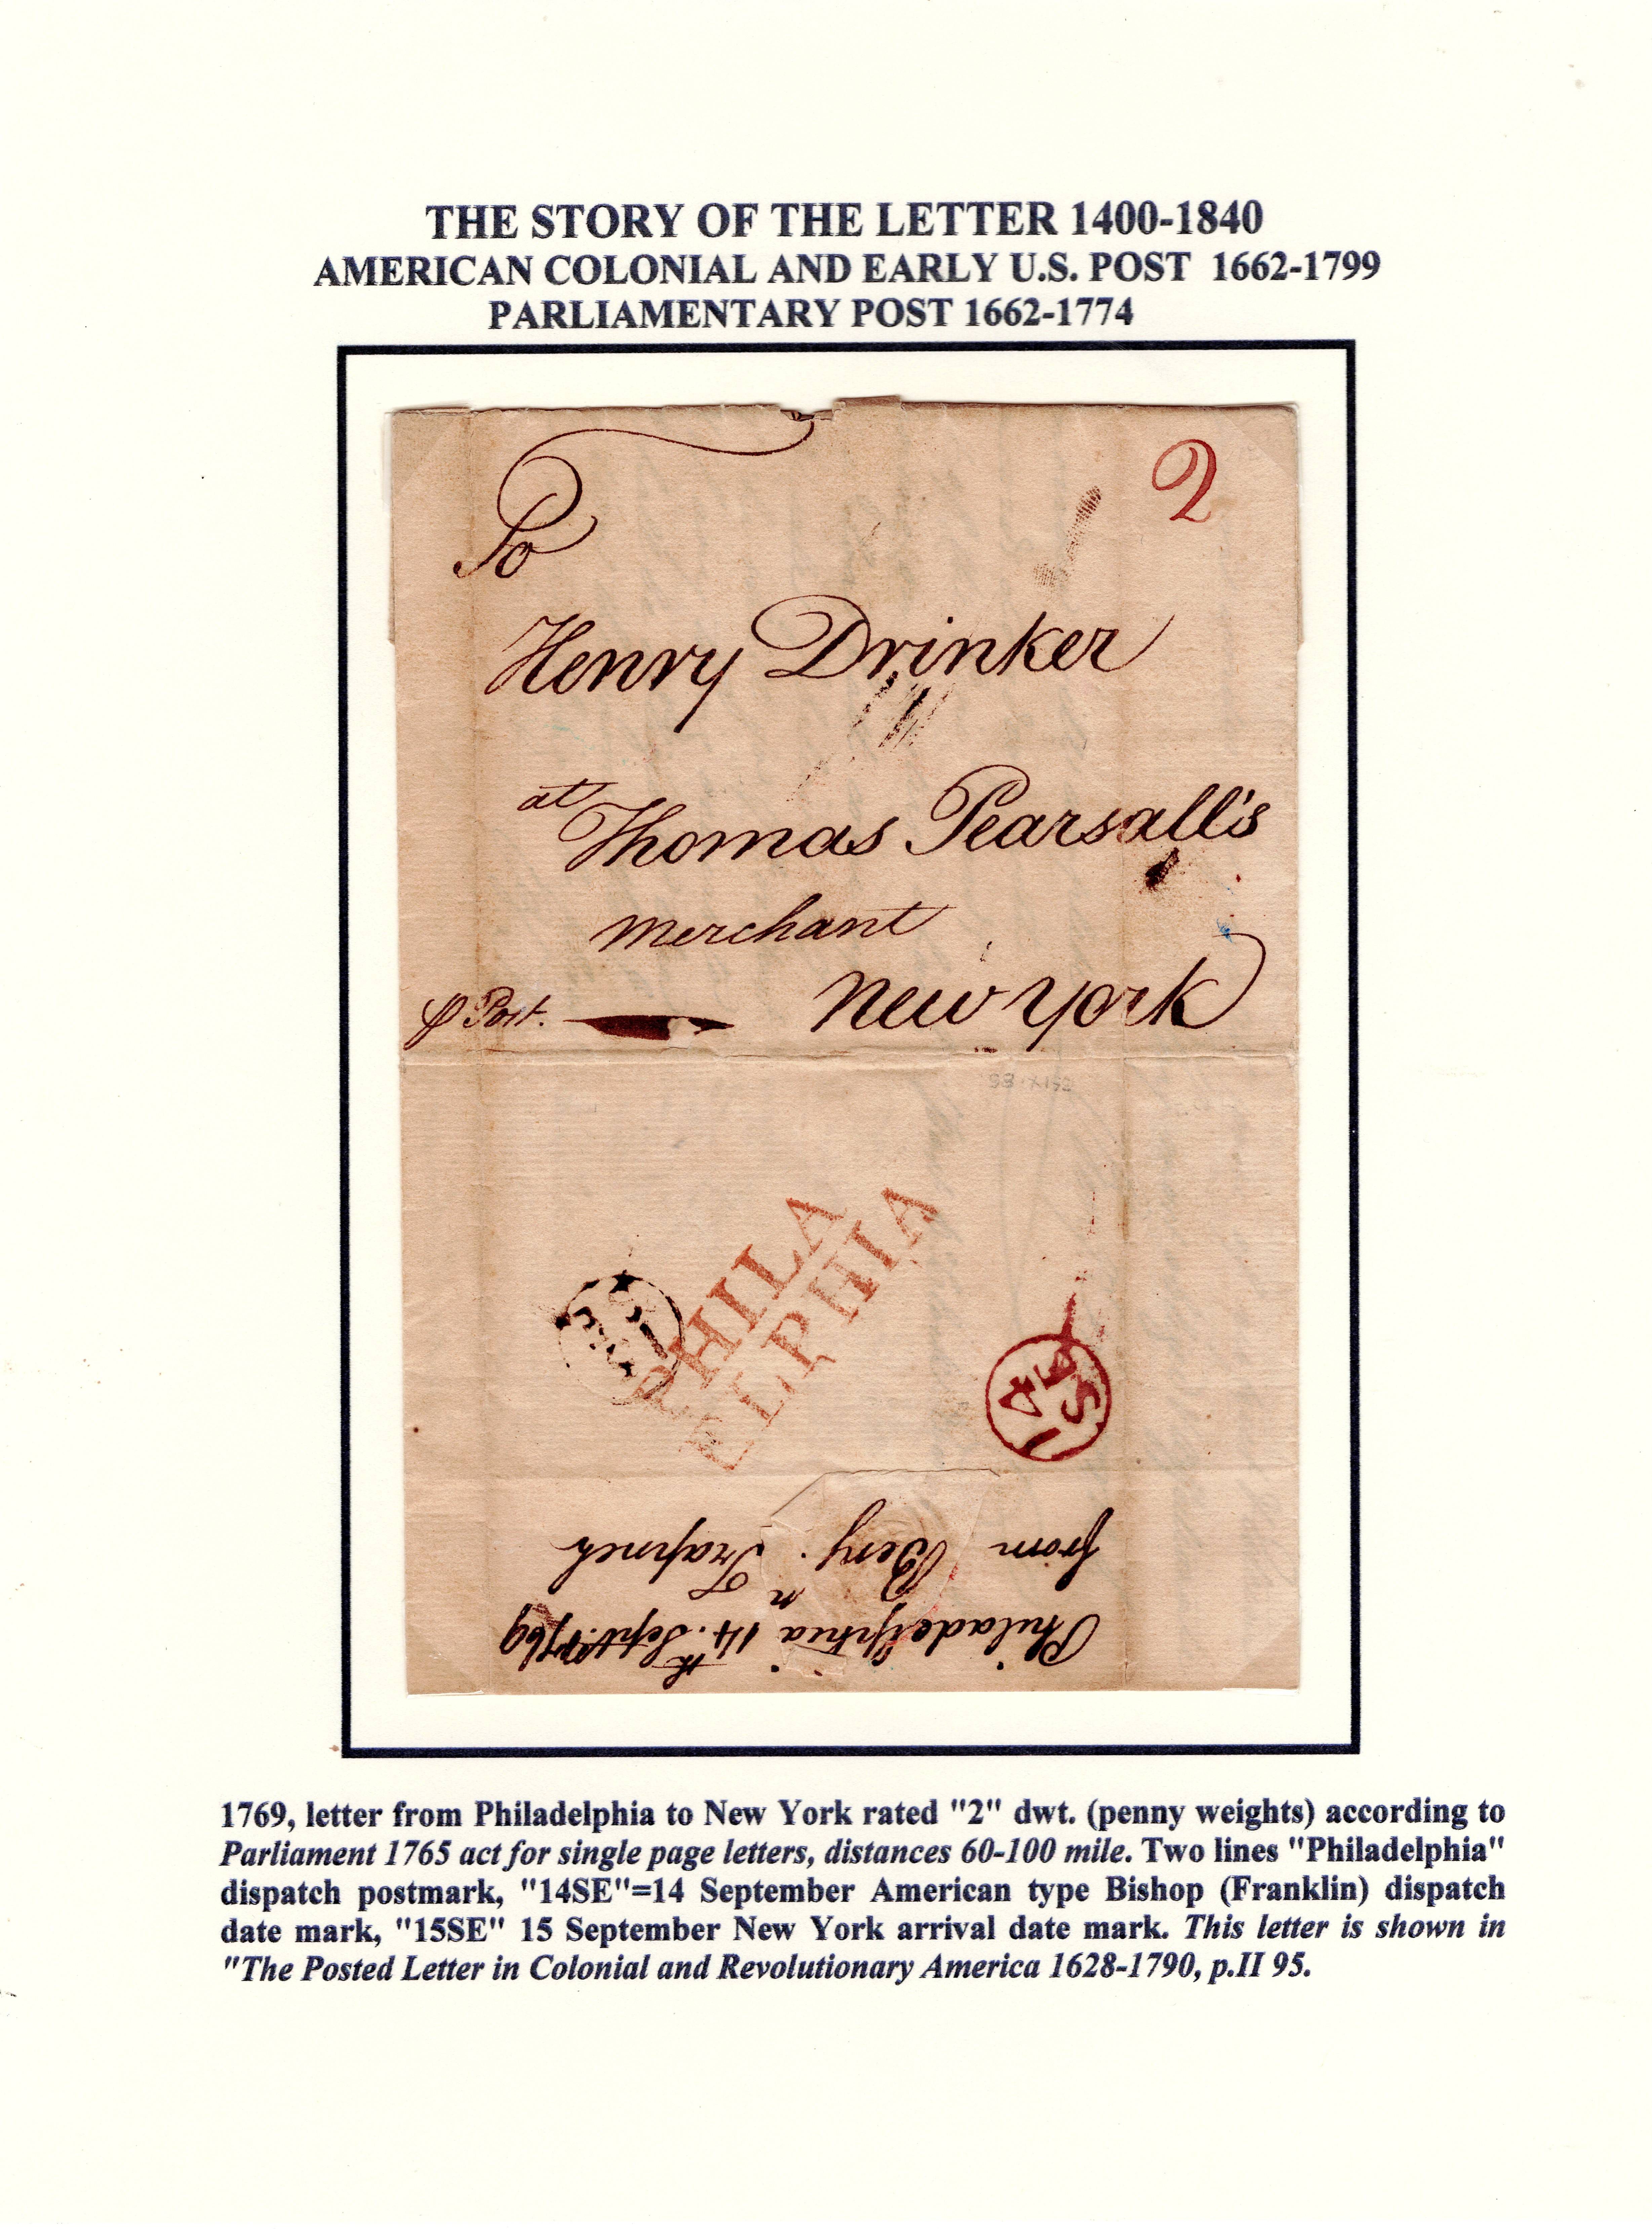 THE STORY OF THE LETTER 1400-1840
AMERICAN COLONIAL AND EARLY U.S. POST 1662-1799
PARLIAMENTARY POST 1662-1774
2
To
Henry Drinker
at
Thomas Pearsall's
merchant
New York
Post.
PHILA
ELPHIA
14
SE
Philadelphia 14th Sept. 1769
from Benj.
1769, letter from Philadelphia to New York rated "2" dwt. (penny weights) according to
Parliament 1765 act for single page letters, distances 60-100 mile. Two lines "Philadelphia"
dispatch postmark, "14SE"=14 September American type Bishop (Franklin) dispatch
date mark, "15SE" 15 September New York arrival date mark. This letter is shown in
"The Posted Letter in Colonial and Revolutionary America 1628-1790, p.II 95.